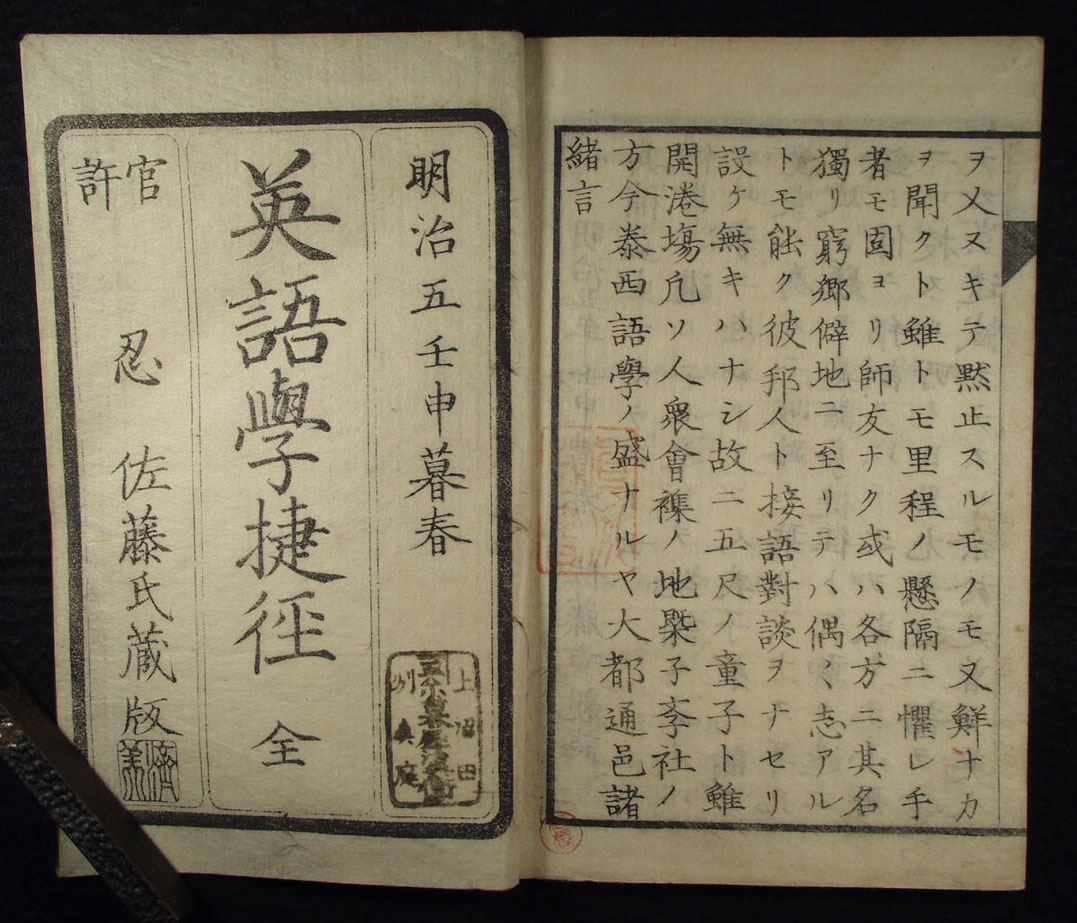 明治五壬申暮春
英語學捷徑 全
官許
忍 佐藤氏蔵版
上沼田
緒言
方今泰西語學ノ盛ナルヤ大都通邑諸
開港場凢ソ人衆會襍ノ地槩子斈社ノ
設ケ無キハナシ故ニ五尺ノ童子ト雖
トモ能ク彼邦人ト接語對談ヲナセリ
獨リ窮鄉僻地ニ至リテハ偶〻志アル
者モ固ヨリ師友ナク或ハ各方ニ其名
ヲ聞クト雖トモ里程ノ懸隔ニ懼レ手
ヲ乂ヌキテ黙止スルモノモ又鮮ナカ